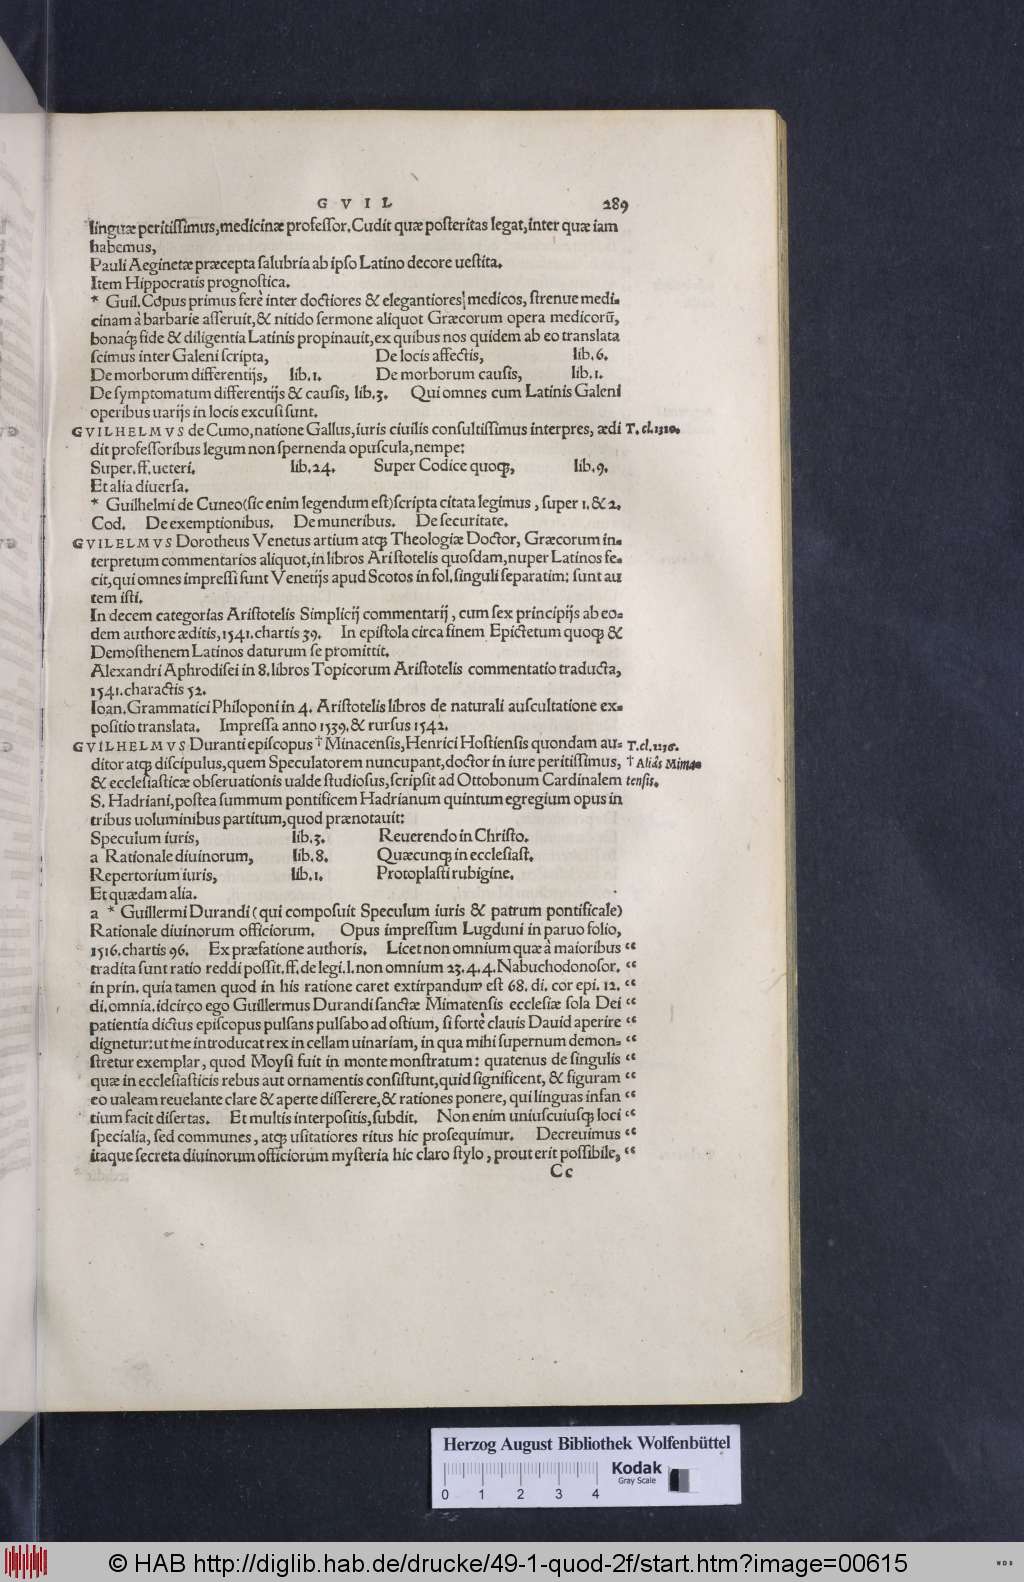 G V I L 289
linguæ peritissimus, medicinæ professor. Cudit quæ posteritas legat, inter quæ iam
habemus,
Pauli Aeginetæ præcepta salubria ab ipso Latino decore uestita.
Item Hippocratis prognostica.
* Guil. Copus primus ferè inter doctiores & elegantiores medicos, strenue medi-
cinam à barbarie asseruit, & nitido sermone aliquot Græcorum opera medicorũ,
bonaq́; fide & diligentia Latinis propinauit, ex quibus nos quidem ab eo translata
scimus inter Galeni scripta, De locis affectis, lib. 6.
De morborum differentijs, lib. 1. De morborum causis, lib. 1.
De symptomatum differentijs & causis, lib. 3. Qui omnes cum Latinis Galeni
operibus uarijs in locis excusi sunt.
GVILHELMVS de Cumo, natione Gallus, iuris ciuilis consultissimus interpres, ædi T. cl. 1310.
dit professoribus legum non spernenda opuscula, nempe:
Super. ff. ueteri. lib. 24. Super Codice quoq;, lib. 9.
Et alia diuersa.
* Guilhelmi de Cuneo (sic enim legendum est) scripta citata legimus, super 1. & 2.
Cod. De exemptionibus. De muneribus. De securitate.
GVILELMVS Dorotheus Venetus artium atq; Theologiæ Doctor, Græcorum in-
terpretum commentarios aliquot, in libros Aristotelis quosdam, nuper Latinos fe-
cit, qui omnes impressi sunt Venetijs apud Scotos in fol. singuli separatim: sunt au
tem isti.
In decem categorias Aristotelis Simplicij commentarij, cum sex principijs ab eo-
dem authore æditis, 1541. chartis 39. In epistola circa finem Epictetum quoq; &
Demosthenem Latinos daturum se promittit.
Alexandri Aphrodisei in 8. libros Topicorum Aristotelis commentatio traducta,
1541. charactis 52.
Ioan. Grammatici Philoponi in 4. Aristotelis libros de naturali auscultatione ex-
positio translata. Impressa anno 1539. & rursus 1542.
GVILHELMVS Duranti episcopus † Minacensis, Henrici Hostiensis quondam au- T. cl. 1236.
ditor atq; discipulus, quem Speculatorem nuncupant, doctor in iure peritissimus, † Aliás Mima-
& ecclesiasticæ obseruationis ualde studiosus, scripsit ad Ottobonum Cardinalem tensis.
S. Hadriani, postea summum pontificem Hadrianum quintum egregium opus in
tribus uoluminibus partitum, quod prænotauit:
Speculum iuris, lib. 3. Reuerendo in Christo.
a Rationale diuinorum, lib. 8. Quæcunq; in ecclesiast.
Repertorium iuris, lib. 1. Protoplasti rubigine.
Et quædam alia.
a * Guillermi Durandi (qui composuit Speculum iuris & patrum pontificale)
Rationale diuinorum officiorum. Opus impressum Lugduni in paruo folio,
1516. chartis 96. Ex præfatione authoris. Licet non omnium quæ à maioribus “
tradita sunt ratio reddi possit. ff. de legi. l. non omnium 23. 4. 4. Nabuchodonosor. “
in prin. quia tamen quod in his ratione caret extirpandum est 68. di. cor epi. 12. “
di. omnia. idcirco ego Guillermus Durandi sanctæ Mimatensis ecclesiæ sola Dei “
patientia dictus episcopus pulsans pulsabo ad ostium, si fortè clauis Dauid aperire “
dignetur: ut me introducat rex in cellam uinariam, in qua mihi supernum demon- “
stretur exemplar, quod Moysi fuit in monte monstratum: quatenus de singulis “
quæ in ecclesiasticis rebus aut ornamentis consistunt, quid significent, & figuram “
eo ualeam reuelante clare & aperte disserere, & rationes ponere, qui linguas infan “
tium facit disertas. Et multis interpositis, subdit. Non enim uniuscuiusq; loci “
specialia, sed communes, atq; usitatiores ritus hic prosequimur. Decreuimus “
itaque secreta diuinorum officiorum mysteria hic claro stylo, prout erit possibile, “
Cc
Herzog August Bibliothek Wolfenbüttel
Kodak
Gray Scale
0 1 2 3 4
© HAB http://diglib.hab.de/drucke/49-1-quod-2f/start.htm?image=00615
WDB